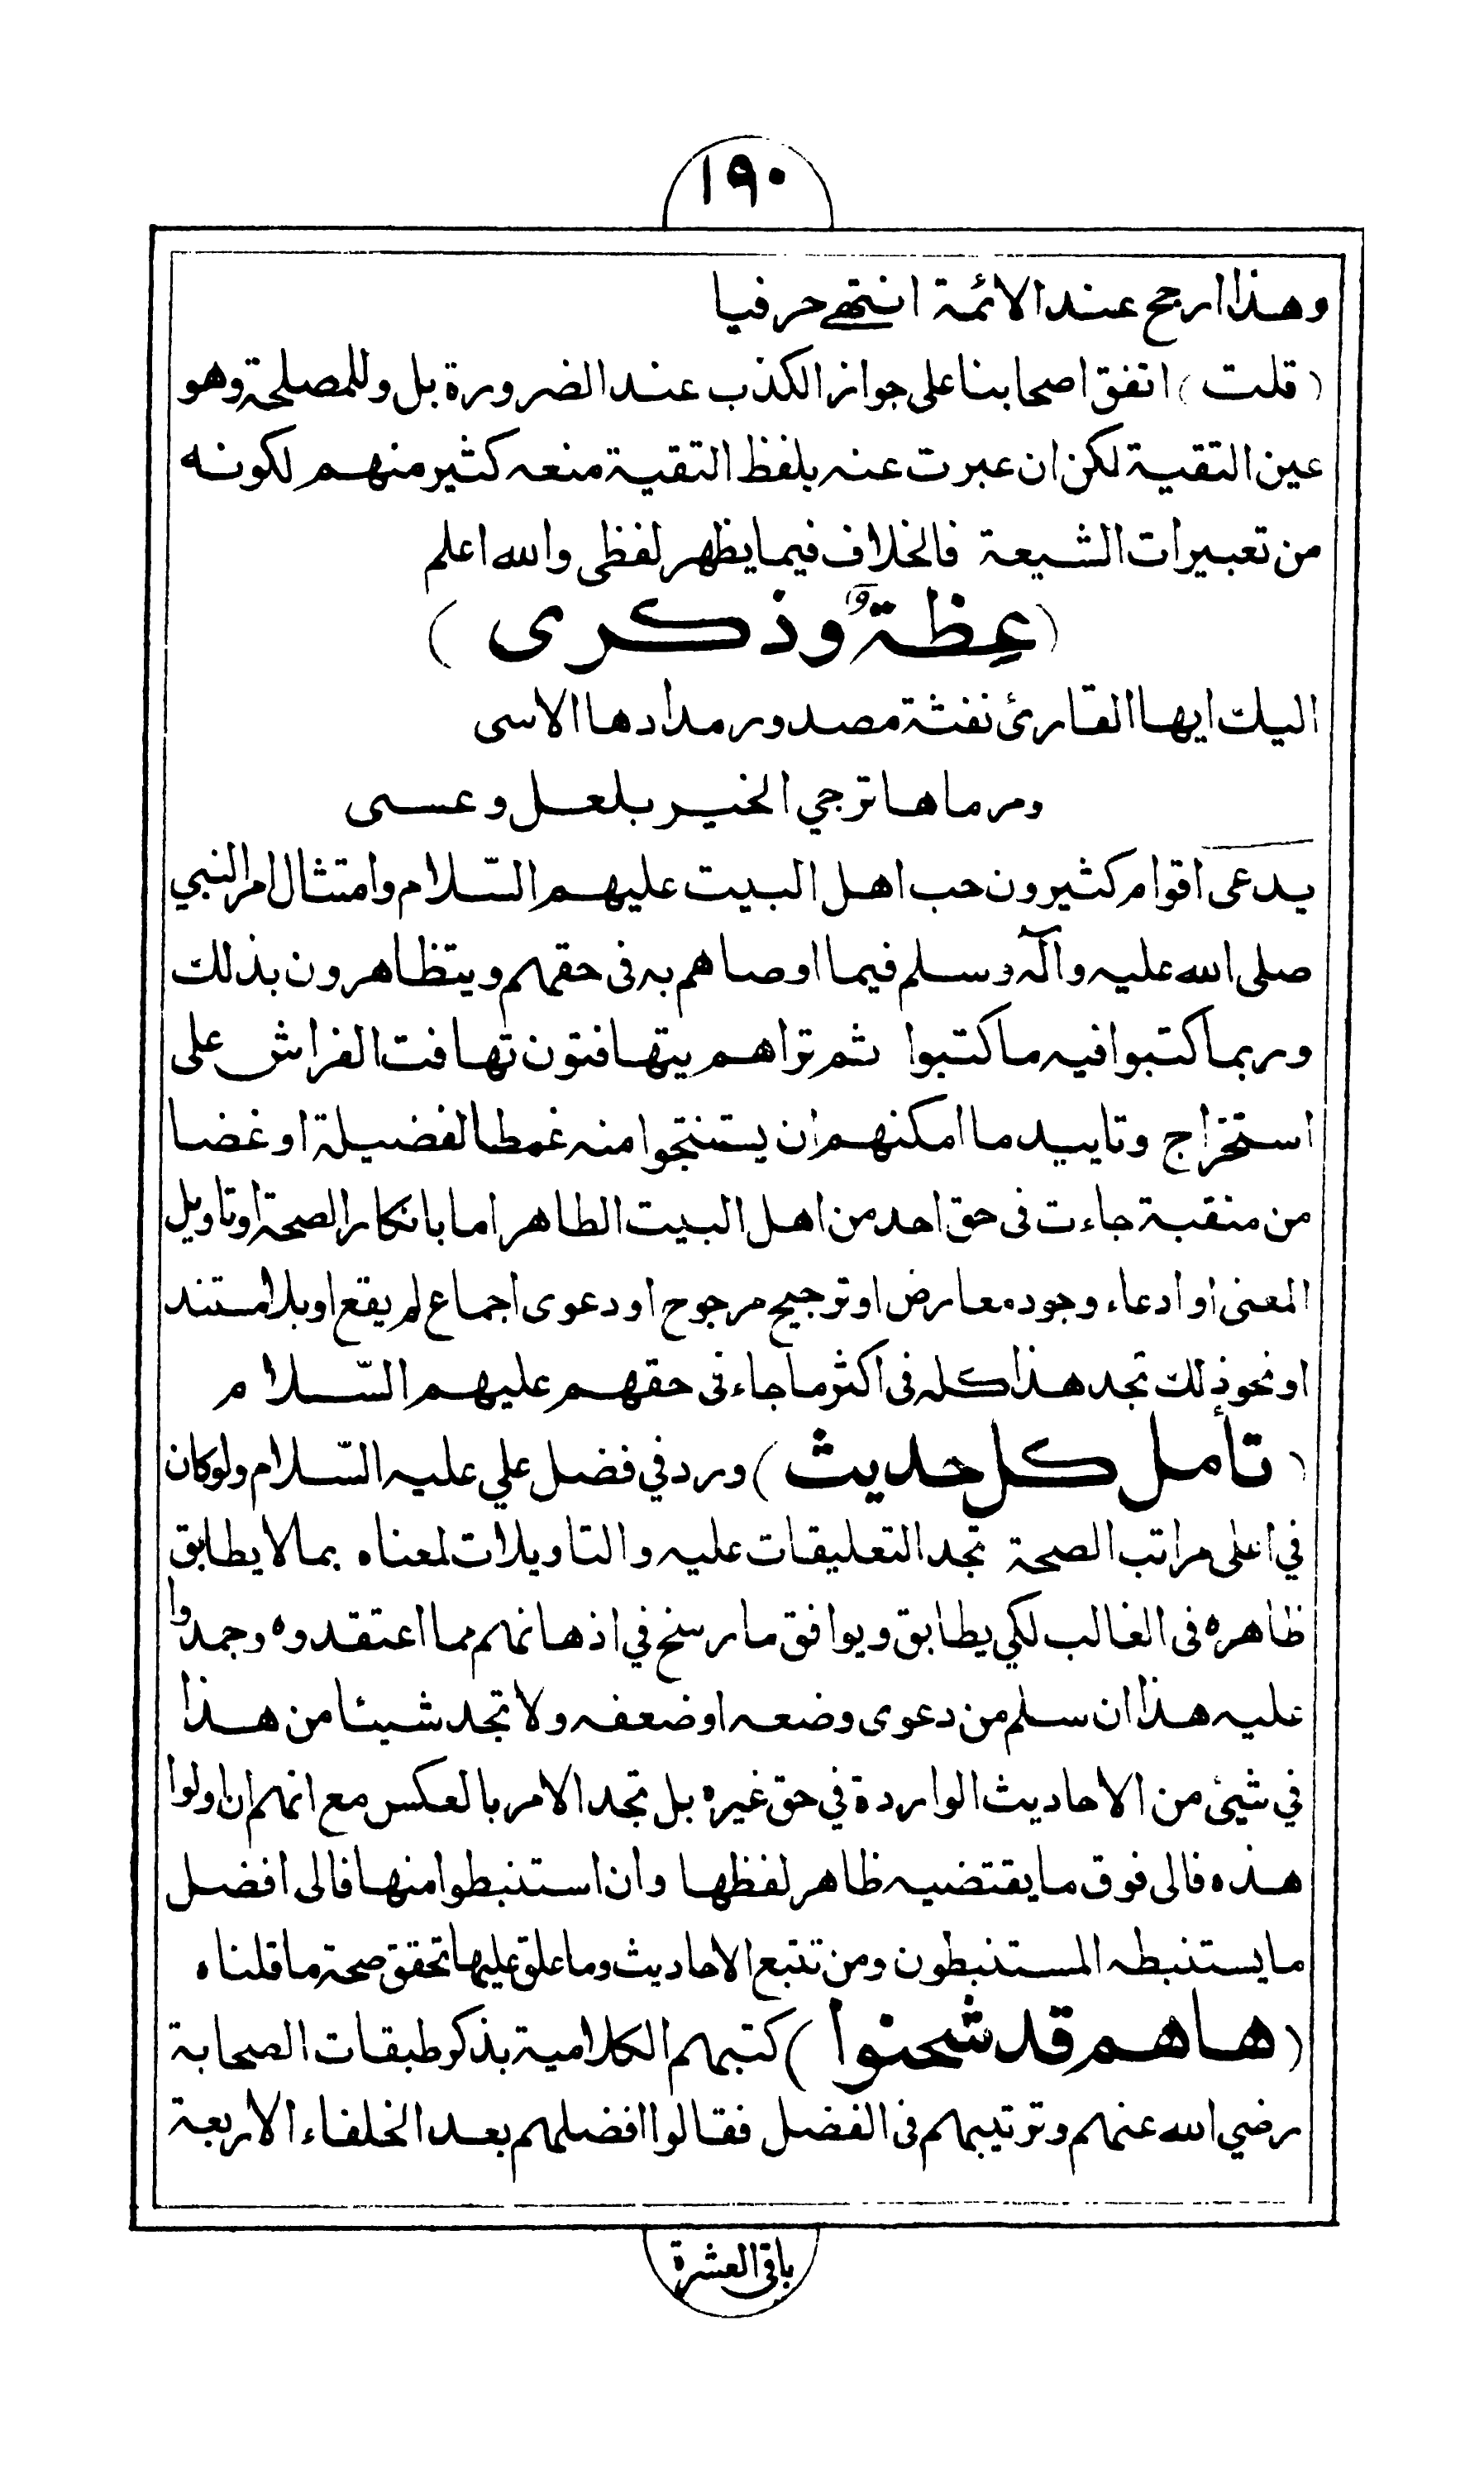 ١٩٠
وهذا ارجح عند الائمة انتهى حرفيا
(قلت) اتفق اصحابنا على جواز الكذب عند الضرورة بل وللمصلحة وهو
عين التقية لكن ان عبرت عنه بلفظ التقية منعه كثير منهم لكونه
من تعبيرات الشيعة فالخلاف فيما يظهر لفظى والله اعلم
(عِظة وذكرى)
اليك ايها القارئ نفثة مصدور مدادها الاسى
ومرماها ترجي الخير بلعل وعسى
يدعى اقوام كثيرون حب اهل البيت عليهم السّلام وامتثال امر النبي
صلى الله عليه وآله وسلم فيما اوصاهم به فى حقهم ويتظاهرون بذلك
وربما كتبوا فيه ما كتبوا ثم تراهم يتهافتون تهافت الفراش على
استخراج وتاييد ما امكنهم ان يستنتجوا منه غمطا لفضيلة او غضا
من منقبة جاءت فى حق احد من اهل البيت الطاهر اما بانكار الصحة او تاويل
المعنى او ادعاء وجود معارض او ترجيح مرجوح او دعوى اجماع لم يقع او بلا مستند
او نحو ذلك تجد هذا كله فى اكثر ما جاء فى حقهم عليهم السّلام
(تأمل كل حديث) ورد في فضل علي عليه السّلام ولو كان
في اعلى مراتب الصحة تجد التعليقات عليه والتاويلات لمعناه بما لا يطابق
ظاهره فى الغالب لكي يطابق ويوافق ما رسخ في اذهانهم مما اعتقدوه وجمدوا
عليه هذا ان سلم من دعوى وضعه او ضعفه ولا تجد شيئا من هذا
في شيئ من الاحاديث الواردة في حق غيره بل تجد الامر بالعكس مع انهم ان اولوا
هذه فالى فوق ما يقتضيه ظاهر لفظها وان استنبطوا منها فالى افضل
ما يستنبطه المستنبطون ومن تتبع الاحاديث وما علق عليها تحقق صحة ما قلناه
(هاهم قد شحنوا) كتبهم الكلامية بذكر طبقات الصحابة
رضي الله عنهم وترتيبهم فى الفضل فقالوا افضلهم بعد الخلفاء الاربعة
باقى العشرة